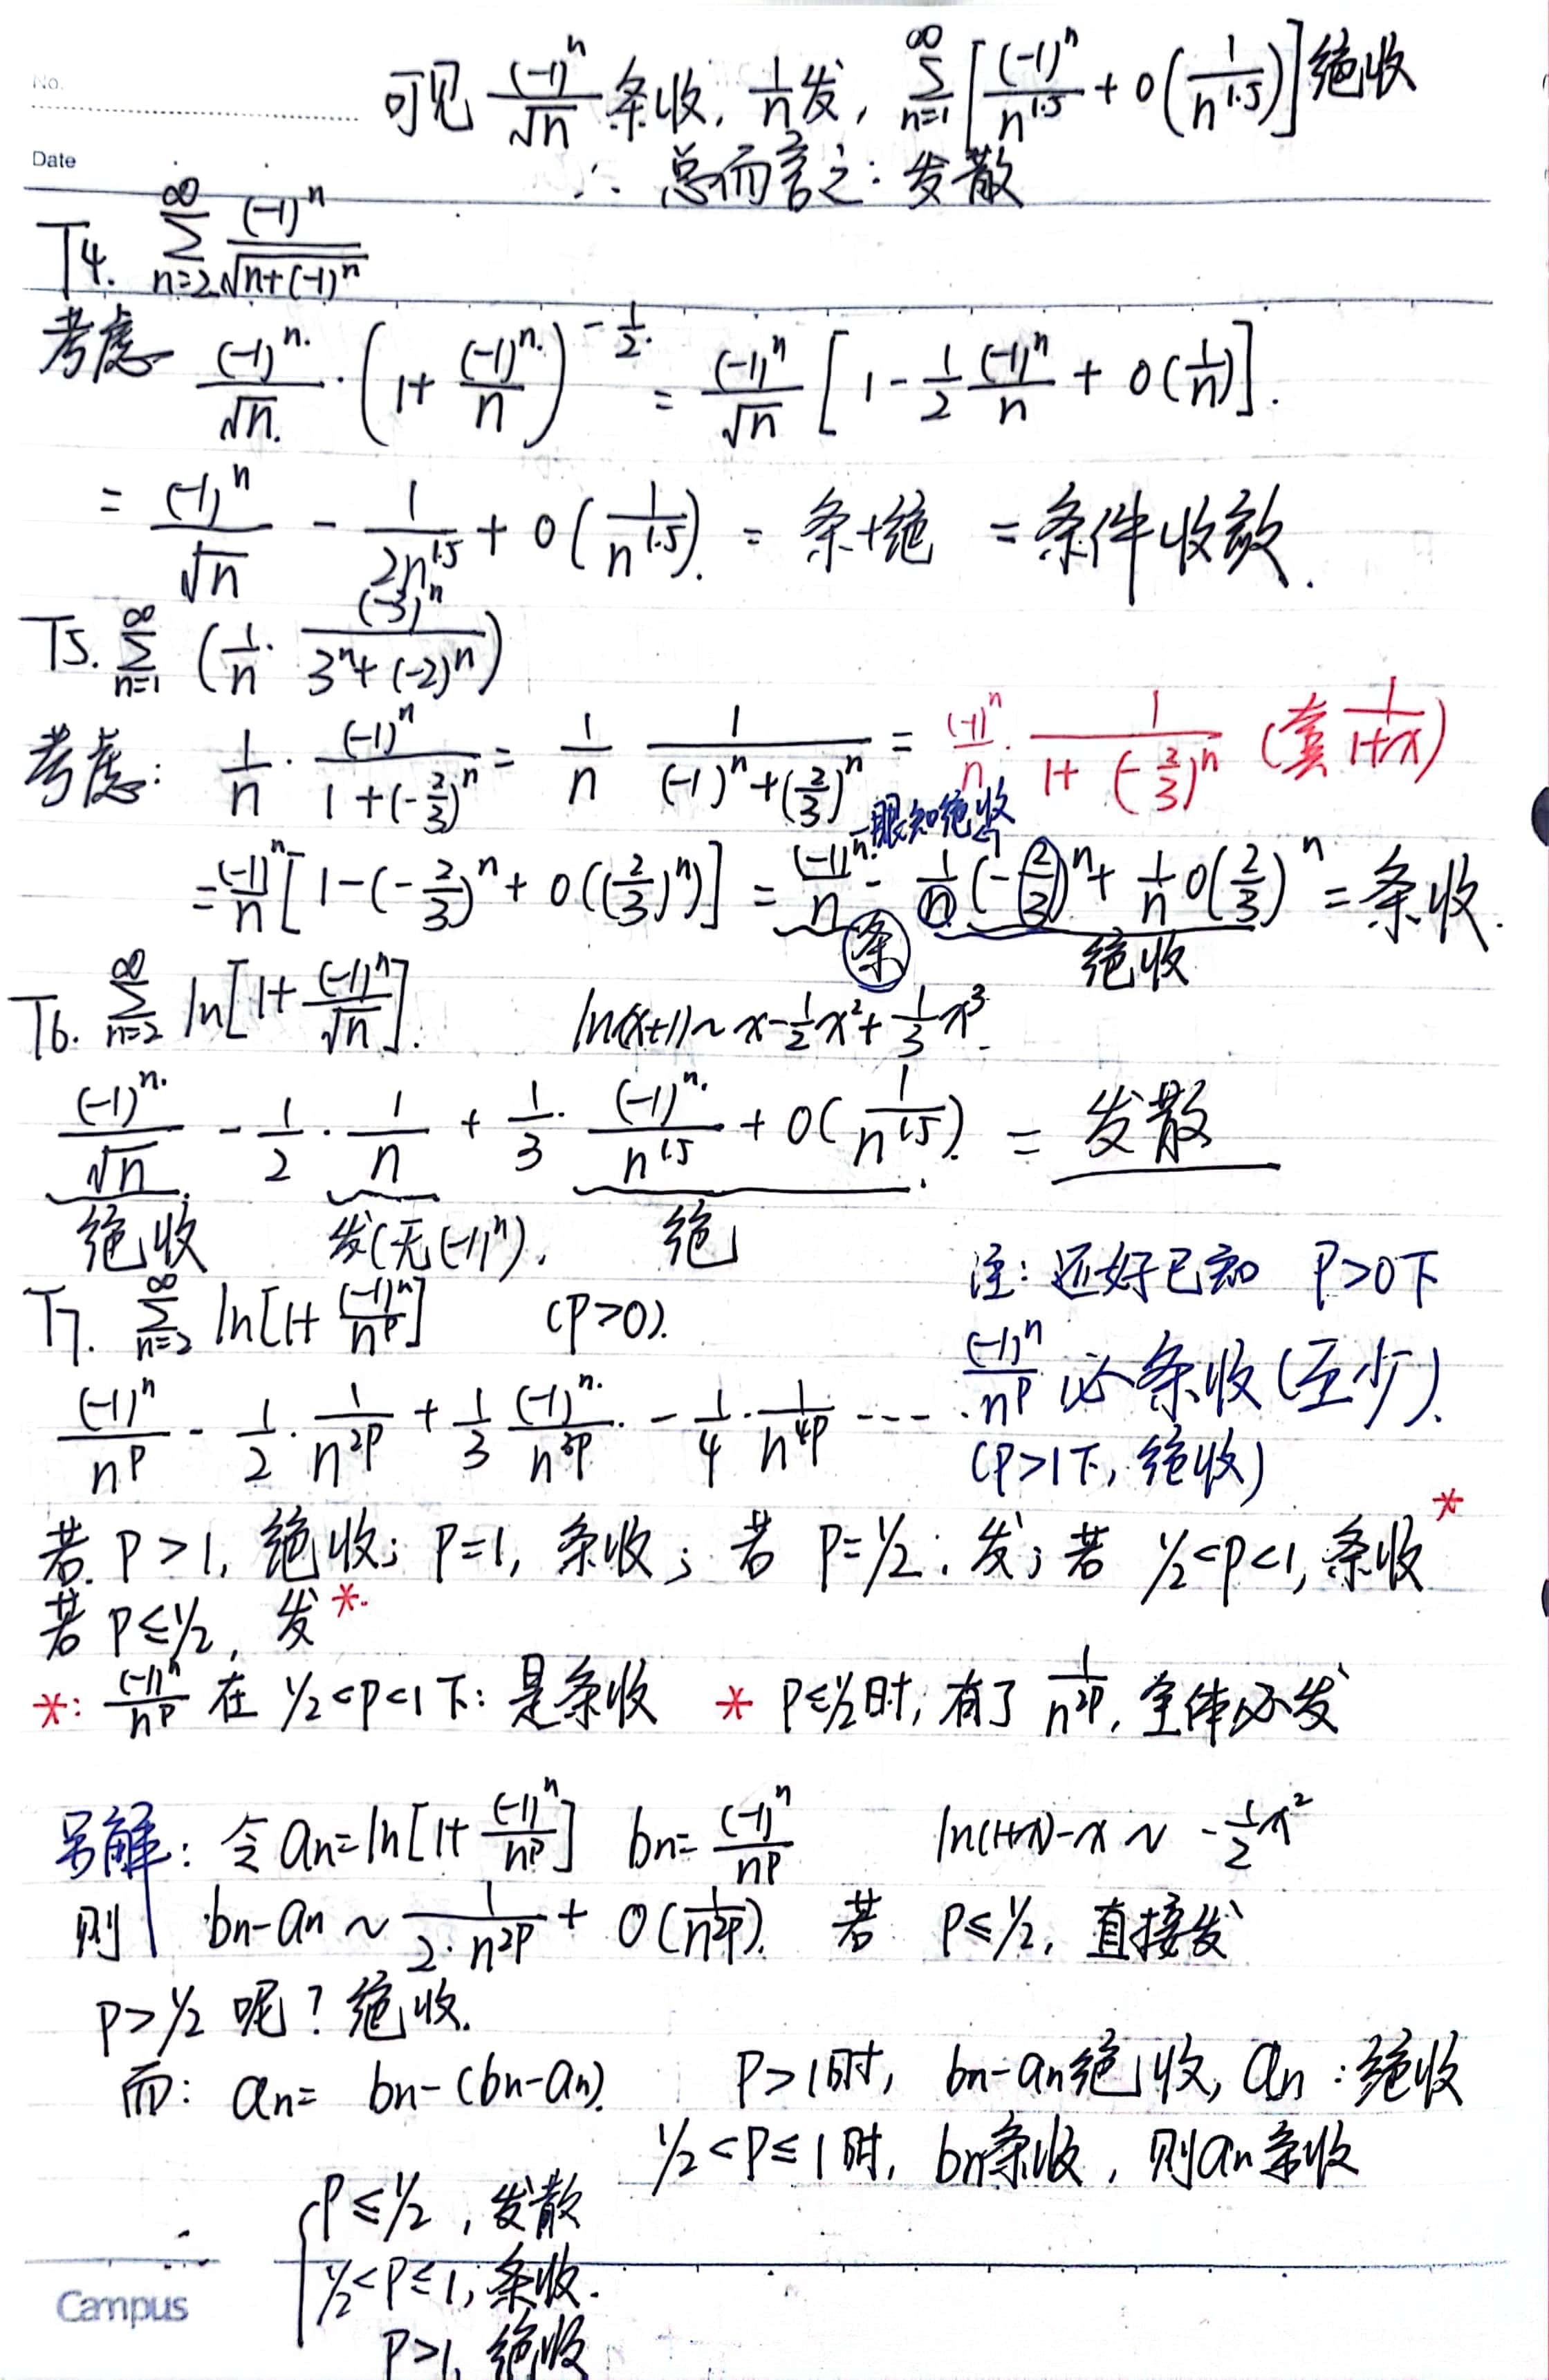 No.
可见 (-1)^n/√n 条收, 1/n发, ∑_{n=1}^{∞}[(-1)^n/n^{1.5} + o(1/n^{1.5})]绝收
Date
∴ 总而言之: 发散
T4. ∑_{n=2}^{∞} (-1)^n/√(n+(-1)^n)
考虑 (-1)^n/√n · (1+ (-1)^n/n)^{-1/2} = (-1)^n/√n [1 - 1/2 (-1)^n/n + o(1/n)].
= (-1)^n/√n - 1/(2n^{1.5}) + o(1/n^{1.5}). = 条+绝 = 条件收敛.
T5. ∑_{n=1}^{∞} (1/n · (-3)^n/(3^n+(-2)^n))
考虑: 1/n · (-1)^n/(1+(-2/3)^n) = 1/n 1/((-1)^n+(2/3)^n) = (-1)^n/n · 1/(1+(-2/3)^n) (套 1/(1+x))
一眼知绝收
= (-1)^n/n [1-(-2/3)^n + o((2/3)^n)] = (-1)^n/n - 1/n (-2/3)^n + 1/n o(2/3)^n = 条收.
条 绝收
T6. ∑_{n=2}^{∞} ln[1+ (-1)^n/√n]. ln(x+1)~x-1/2x²+1/3x³.
(-1)^n/√n - 1/2 · 1/n + 1/3 · (-1)^n/n^{1.5} + o(1/n^{1.5}). = 发散
绝收 发(无(-1)^n). 绝
T7. ∑_{n=2}^{∞} ln[1+ (-1)^n/n^p] (P>0).
注: 还好已知 P>0下
(-1)^n/n^p 必条收(至少).
(P>1下, 绝收)
(-1)^n/n^p - 1/2 · 1/n^{2p} + 1/3 (-1)^n/n^{3p} - 1/4 · 1/n^{4p} ----
若 P>1, 绝收; P=1, 条收; 若 P=1/2: 发; 若 1/2<P<1, 条收*
若 P≤1/2, 发*.
*: (-1)^n/n^p 在 1/2<P<1下: 是条收 * P≤1/2时, 有了 1/n^{2p}, 全体必发
另解: 令 an=ln[1+ (-1)^n/n^p] bn= (-1)^n/n^p ln(1+x)-x ~ -1/2x²
则 bn-an ~ 1/(2·n^{2p}) + o(1/n^{2p}). 若 P≤1/2, 直接发
P>1/2 呢? 绝收.
而: an= bn-(bn-an). P>1时, bn-an绝收, an:绝收
1/2<P≤1时, bn条收, 则an条收
∴ { P≤1/2, 发散
1/2<P≤1, 条收.
P>1, 绝收
Campus